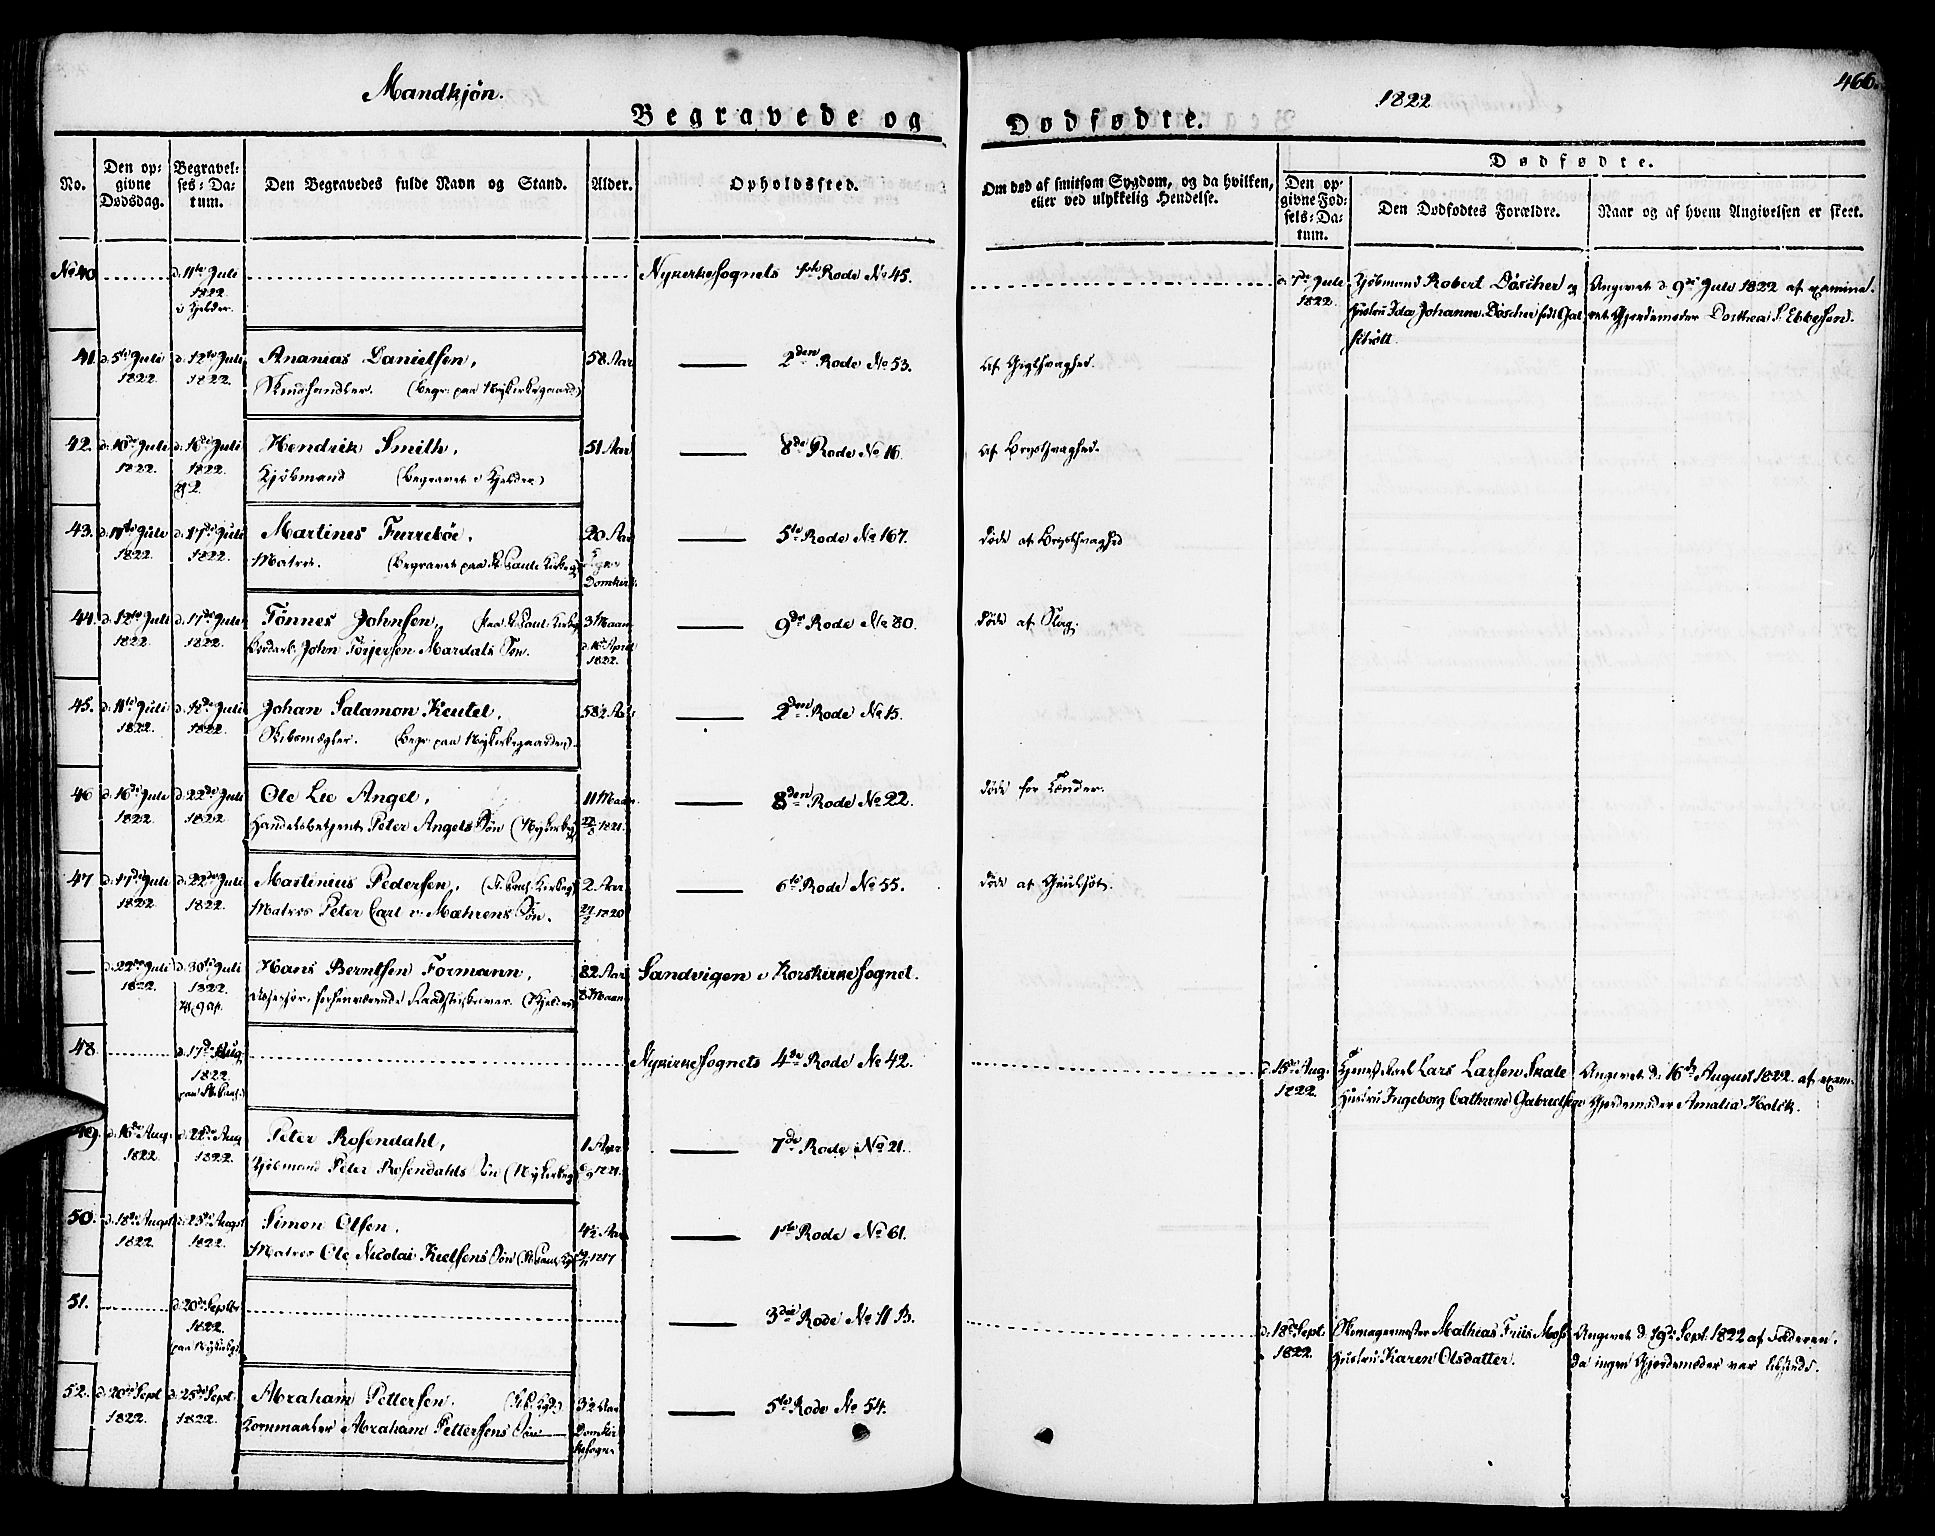 Mandkjøn.
1822
466.
Begravede og
Dødfødte.
No.
Den op-
givne
Dødsdag.
Begravel-
ses-Da-
tum.
Den Begravedes fulde Navn og Stand.
Alder.
Opholdssted.
Om død af smitsom Sygdom, og da hvilken,
eller ved ulykkelig Hendelse.
Dødfødte.
Den op-
givne Fød-
sels-Da-
tum.
Den Dødfødtes Forældre.
Naar og af hvem Angivelsen er skeet.
No 40
d. 11te Juli
1822
i Kjelder.
Nykirkesognets 1ste Rode No 45.
d. 7de Juli
1822.
Kjøbmand Robert Döscher og
Hustru Ida Johanne Döscher født
Angivet d. 9de Juli 1822 af examine-
ret Gjordemoder Dorthea S. Ebbesen.
41.
d. 5te Juli
1822.
d. 12te Juli
1822.
Ananias Danielsen,
(begr: paa Nykirkegaard)
58 Aar
2den Rode No 53.
af Gigtsvaghed.
42.
d. 10de Juli
1822.
d. 16de Juli
1822.
Hendrik Smith,
Kjøbmand (begravet i Kjelder)
51 Aar
8de Rode No 16.
af Brystsvaghed.
43.
d. 11te Juli
1822.
d. 17de Juli
1822.
Martines Furrebøe,
Matros. (begravet paa St. Pauls Kirkeg)
20 Aar
Domkirk
5te Rode No 167.
døde af Brystsvaghed
44.
d. 12te Juli
1822.
d. 17de Juli
1822.
Tønnes Johnsen, (paa St. Pauls Kirkeg
John Törjersen Mardals Søn.
3 Maan
d. 16 April
1822.
9de Rode No 80.
døde af Slag.
45.
d. 11te Juli
1822.
d. 18de Juli
1822.
Johan Salamon Keutel,
Skibsmægler. (begr: paa Nykirkegaarden)
58½ Aar
2den Rode No 15.
46
d. 16de Juli
1822.
d. 22de Juli
1822
Ole Lee Angel,
Handelsbetjent Peter Angels Søn (Nykirkeg)
11 Maan
22/8 1821.
8den Rode No 22.
døde for Tænder.
47
d. 17de Juli
1822.
d. 22de Juli
1822.
Martinius Pedersen, (St. Pauls Kirkeg)
Matros Peter Carl v: Mahrens Søn.
2 Aar
1820
6te Rode No 55.
døde af Guulsot.
d. 22de Juli
1822.
d. 30te Juli
1822
Hans Berntsen Formann,
Assessor, forhenværende Raadstueskriver. (Kjelder)
82 Aar
8 Maan
Sandvigen i Korskirkesognet.
48
d. 17de Aug.
1822
paa St. Pauls.
Nykirkesognets 4de Rode No 42.
d. 15de Aug.
1822.
Lars Larsen Skale
Hustru Ingeborg Cathrine Gabrielsen
Angivet d. 16de August 1822. af exam.
Gjordemoder Amalia Holck.
49.
d. 16de Aug.
1822
d. 22de Aug
1822.
Peter Rosendahl,
Kjøbmand Peter Rosendahls Søn (Nykirkeg)
1 Aar
1821.
7de Rode No 21.
50.
d. 18de Augst
1822.
d. 23de Augst
1822.
Simon Olsen,
Matros Ole Nicolai Kielsens Søn (St. Pauls Kg)
4½ Aar
1817
1ste Rode No 61.
51.
d. 20de Septbr
1822.
paa Nykirkeg.
3die Rode No 11 B.
d. 18de Sept.
1822.
Skomagermester Mathias Friis Moss
Hustru Karen Olsdatter.
Angivet d. 19de Sept. 1822 af Faderen.
da ingen Gjordemoder var tilstede.
52.
d. 20de Sept
1822.
d. 25de Sept.
1822.
Abraham Pettersen.
Kornmaaler Abraham Pettersens Søn
3½ Aar
Domkir
kesogn
5te Rode No 54.